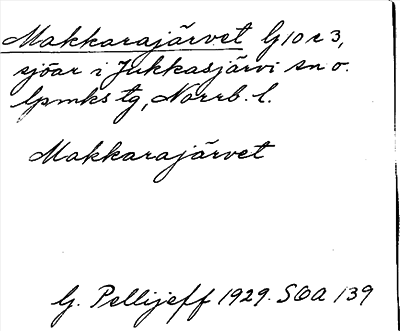 Makkarajärvet G10 r 3,
sjöar i Jukkasjärvi sn o.
lpmks tg, Norrb. l.
Makkarajärvet
G. Pellijeff 1929. SOA 139